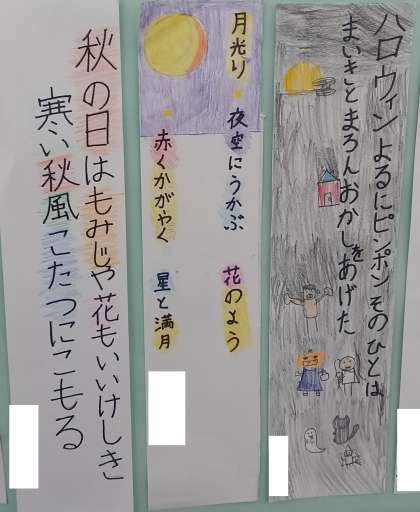 ハロウィン よるにピンポン そのひとは
まいきとまろんおかしをあげた
月光り 夜空にうかぶ 花のよう
赤くかがやく 星と満月
秋の日はもみじや花もいいけしき
寒い秋風こたつにこもる